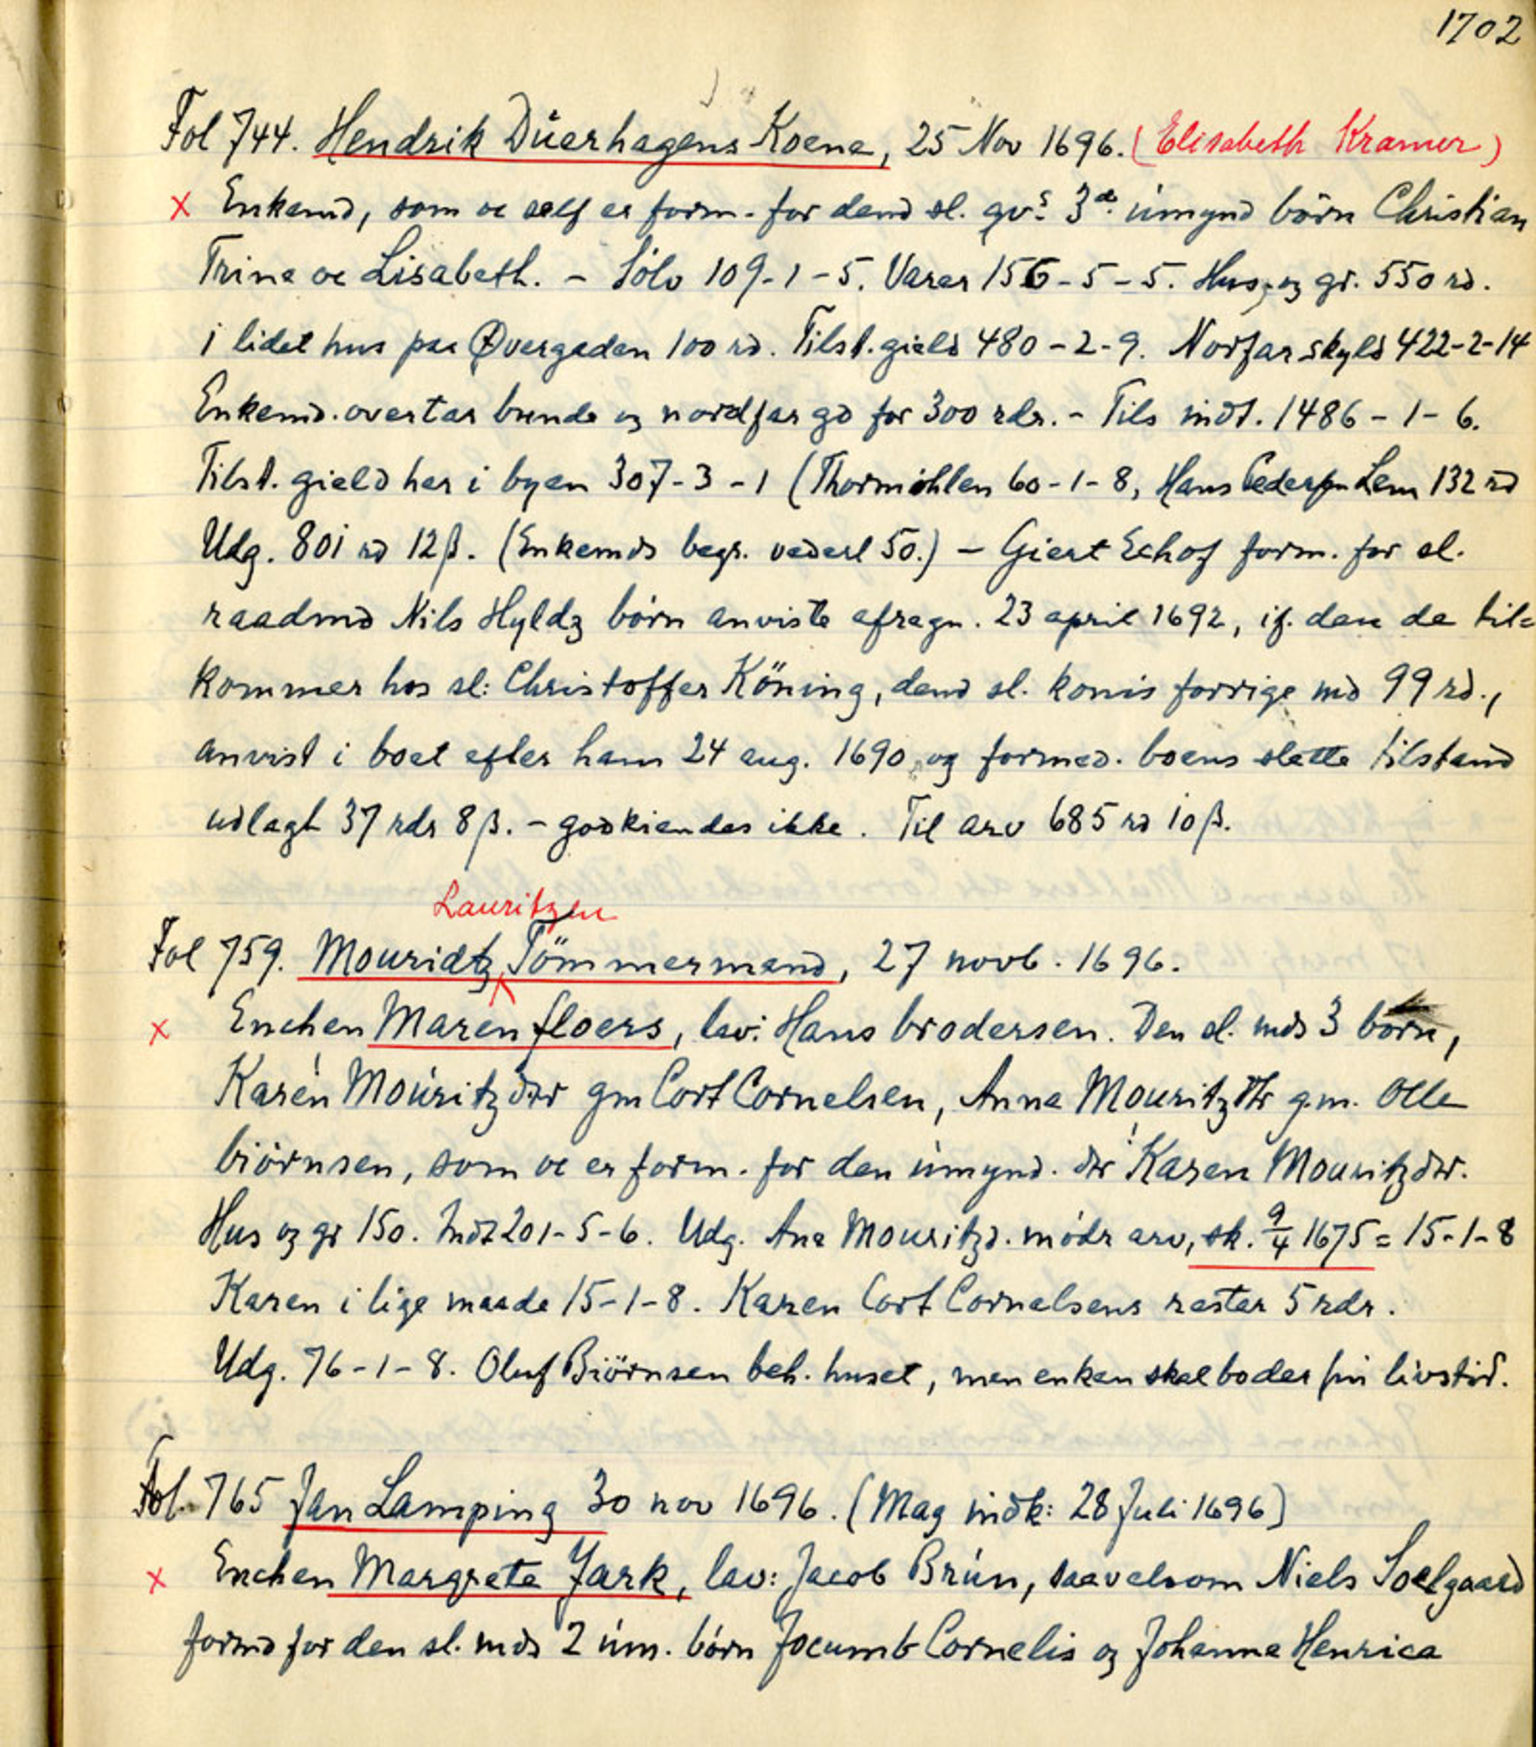 1702
Fol 744. Hendrik Düerhagens Koene, 25 Nov 1696. (Elisabeth Kramer)
x Enkemd, som oc self er form. for dend sl. qvs 3de úmynd børn Christian
Trine oc Lisabeth. - Sølv 109-1-5. Varer 156-5-5. Hus, og gr. 550 rd.
i lidet hus paa Øvergaden 100 rd. Tilst. gield 480-2-9. Norfar skyld 422-2-14
Enkemd. overtar bunde og nordfar gd for 300 rdr. - Tils indt. 1486-1-6.
Tilst. gield her i byen 307-3-1 (Thormøhlen 60-1-8, Hans Pedersøn Lem 132 rd
Udg. 801 rd 12 β. (Enkemds begr. vederl 50.) - Giert Echof form. for sl.
raadmd Nils Hyldz børn anviste afregn. 23 april 1692, if. den de til=
kommer hos sl: Christoffer Köning, dend sl. konis forrige md 99 rd.,
anvist i boet efter ham 24 aug. 1690 og formed. boens slette tilstand
udlagt 37 rdr 8 β. - godkiendes ikke. Til arv 685 rd 10 β.
Lauritzen
Fol 759. Mouridtz Tömmermand, 27 novb. 1696.
x Enchen Maren floers, lav: Hans brodersen. Den sl. mds 3 børn,
Karen Moúritzdtr gm Cort Cornelsen, Anna Mouritzdtr g.m. Olle
biörnsen, som oc er form. for den úmynd. dtr Karen Mouritzdtr.
Hus og gr 150. Indt 201-5-6. Udg. Ane Mouritzd. mødr arv, sk. 9/4 1675 = 15-1-8
Karen i lige maade 15-1-8. Karen Cort Cornelsens rester 5 rdr.
Udg. 76-1-8. Oluf Biörnsen beh. huset, men enken skal bo der sin livstid.
Fol. 765 Jan Lamping 30 nov 1696. (Mag indk: 28 Juli 1696)
x Enchen Margrete Jark, lav: Jacob Brún, saavelsom Niels Soelgaard
formd for den sl. mds 2 úm. børn Jocumb Cornelis og Johanne Henrica